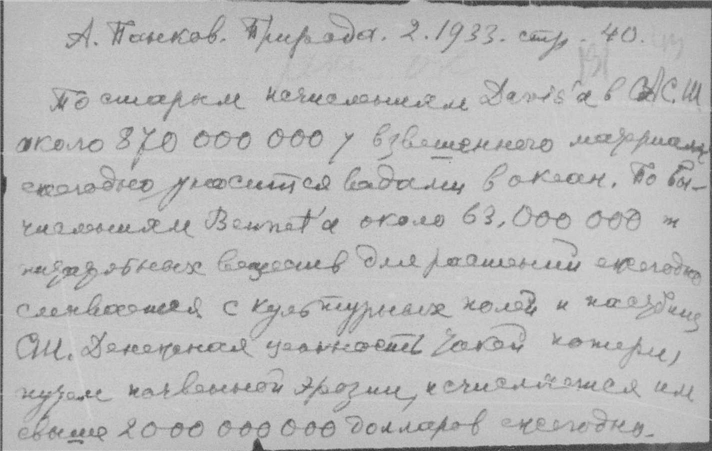 А. Панков. Природа. 2. 1933. стр. 40.
По старым исчислениям Davis'a в С.Ш.
около 870 000 000 т взвешенного материала
ежегодно уносится водами в океан. По вы-
числениям Bennet'a около 63,000 000 т
питательных веществ для растений ежегодно
смывается с культурных полей и пастбищ
СШ. Денежная ценность такой потери,
путем почвенной эрозии, исчисляется им
свыше 2000 000 000 долларов ежегодно.